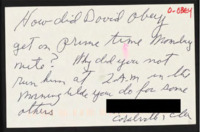 O-OBEY
How did David Obey
get on prime time Monday
nite? Why did you not
run him at 2 A.M. in the
morning like you do for some
others